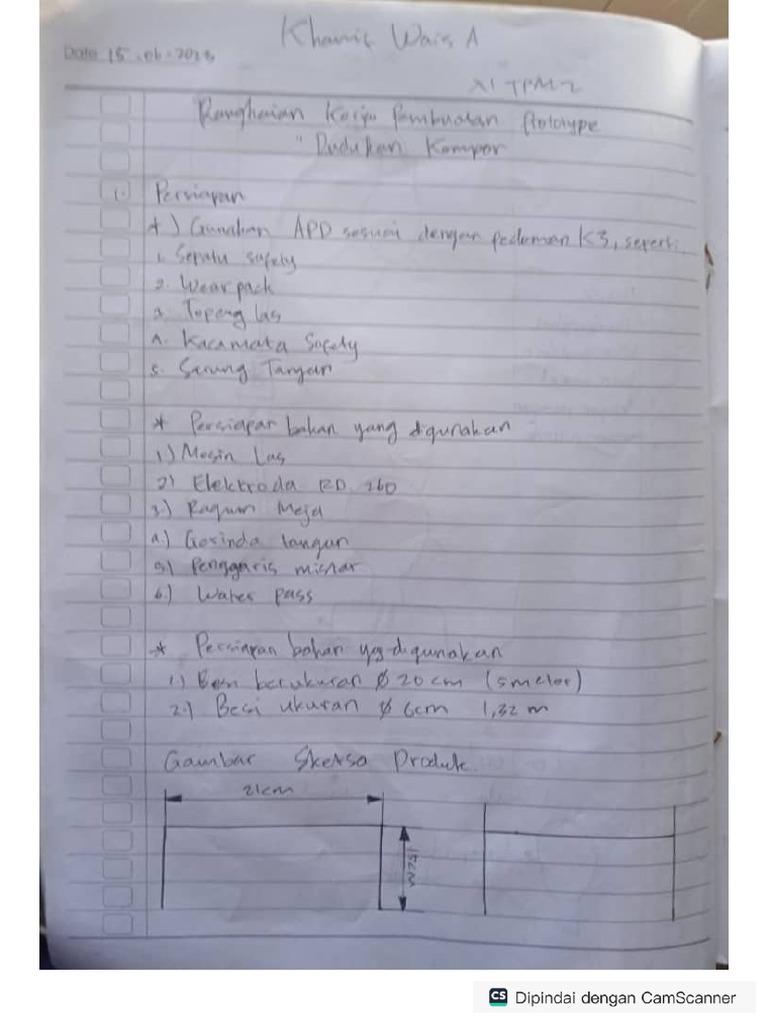 Khamis Wais A
Date 15.06.2023
XI TPM 2
Rangkaian Kerja Pembuatan Prototype
" Dudukan Kompor
1. Persiapan
*) Gunakan APD sesuai dengan pedoman K3, seperti
1. Sepatu safety
2. Wearpack
3. Topeng las
4. Kacamata Safety
5. Sarung Tangan
* Persiapan bahan yang digunakan
1) Mesin Las
2) Elektroda RD 260
3.) Ragum Meja
4.) Gerinda tangan
5) Penggaris mistar
6.) Water pass
* Persiapan bahan yg digunakan
1) Besi berukuran Ø 20 cm (5 meter)
2.) Besi ukuran Ø 6cm 1,32 m
Gambar Sketsa Produk
21cm